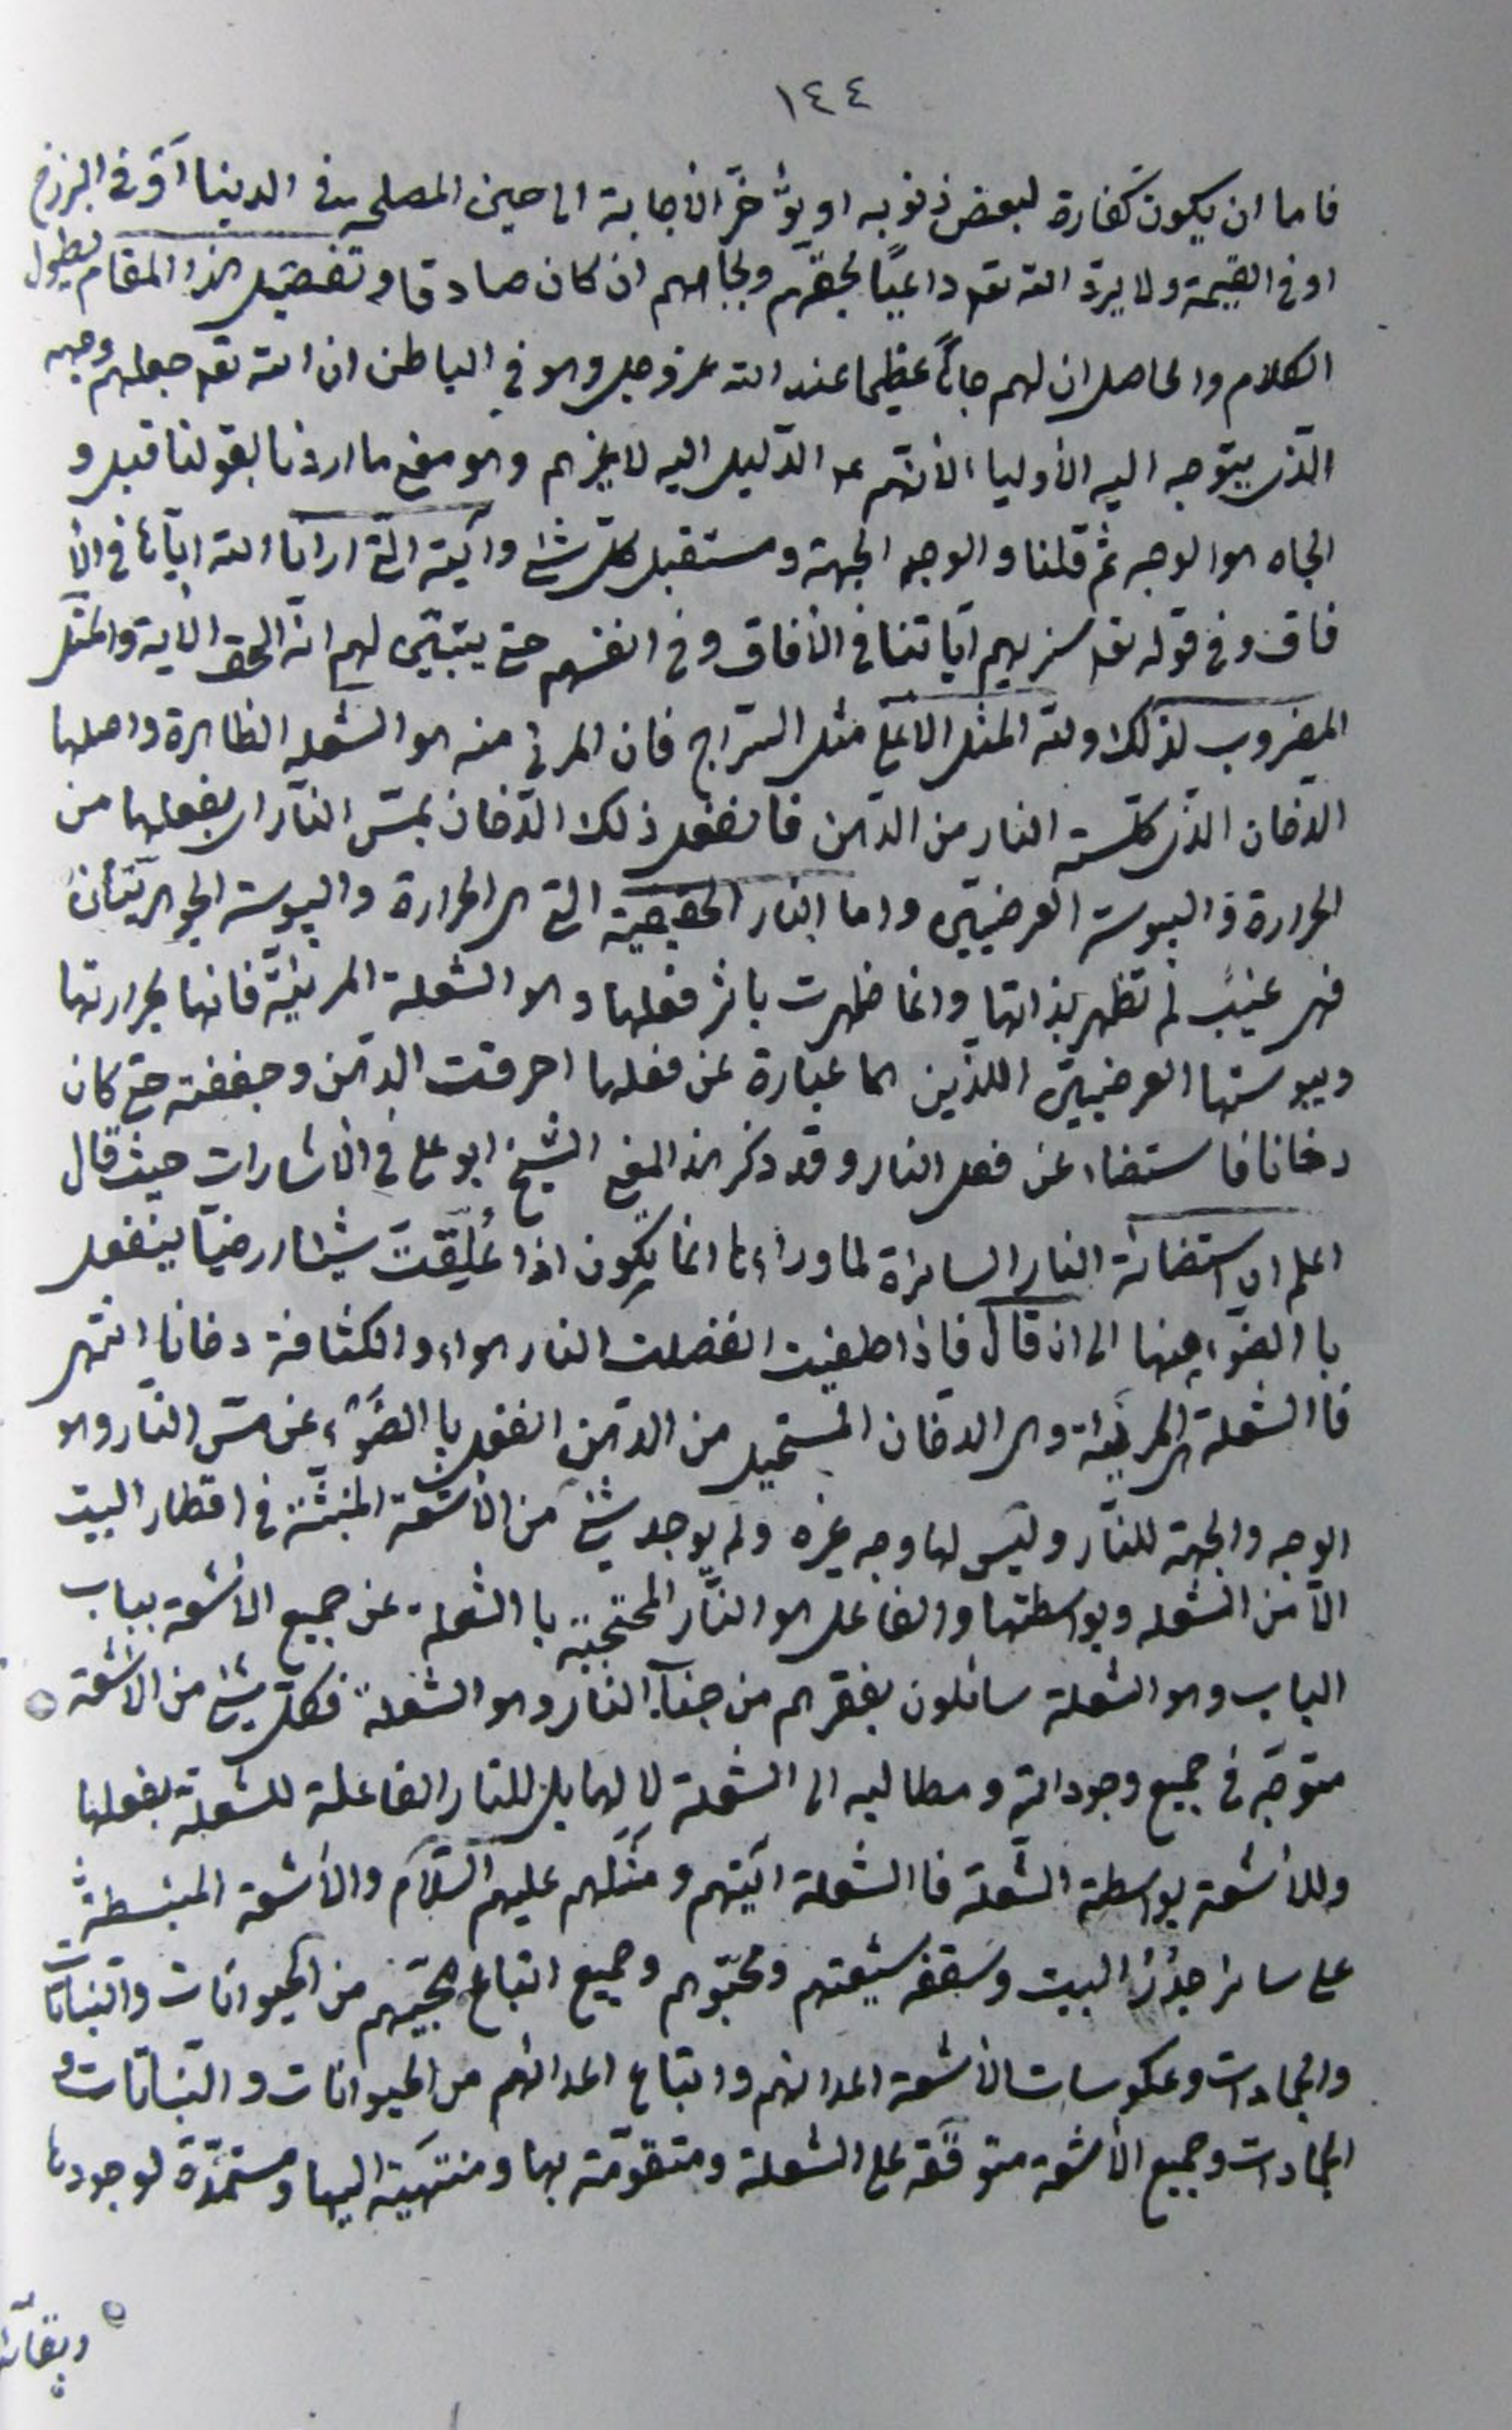 ١٤٤
فاما ان يكون كفارة لبعض ذنوبه او يؤخّر الاجابة الى حين المصلحة فى الدنيا او فى البرزخ
او فى القيمة ولا يردّ الله تعه داعيًا بحقّهم وبجاههم ان كان صادقا وتفصيل هذا المقام يطول
الكلام والحاصل ان لهم جاهًا عظيما عند الله عزوجل وهو فى الباطن ان الله تعه جعلهم وجهه
الّذى يتوجه اليه الاولياء لانّهم عه الدّليل اليه لا غيرهم وهو معنى ما اردنا بقولنا قبل و
الجاه هو الوجه ثم قلنا والوجه الجهة ومستقبل كلّ شئ وآيته الّتى ارانا الله ايّاها فى الآ
فاق وفى قوله تعه سنريهم آياتنا فى الآفاق وفى انفسهم حتى يتبيّن لهم انّه الحق الآية والمثل
المضروب لذلك ولله المثل الاعلى مثل السّراج فان المرئى منه هو الشعله الظاهرة واصلها
الدّخان الذى كلّسته النار من الدّهن فانفعل ذلك الدّخان بمسّ النّار اى بفعلها من
الحرارة واليبوسة العرضيّين واما النار الحقيقية التى هى الحرارة واليبوسة الجوهريّتان
فهى غيب لم تظهر بذاتها وانما ظهرت باثر فعلها وهو الشعلة المرئيّة فانها بحرارتها
ويبوستها العرضيين اللذين هما عبارة عن فعلها احرقت الدّهن وجففته حتى كان
دخانا فاستضاء عن فعل النار وقد ذكر هذا المعنى الشيخ ابو على فى الاشارات حيث قال
اعلم ان استضائة النار الساترة لما وراءها انما يكون اذا عُلِّقت شيئا ارضيّا ينفعل
با الضّوء عنها الى ان قال فاذا طفيت انفصلت النار هواء والكثافة دخانا انتهى
فا الشعلة المرئية هى الدخان المستحيل من الدّهن انفعل با الضّوء عن مسّ النّار وهو
الوجه والجهة للنّار وليس لها وجه غيره ولم يوجد شئ من الاشعّة المنبثّة فى اقطار البيت
الّا من الشعله وبواسطتها والفاعل هو النّار المحتجبة با الشعلة عن جميع الاشعة بباب
الباب وهو الشعلة سائلون بفقرهم من جناب النار وهو الشعلة فكلّ شئ من الاشعّة
متوجّه فى جميع وجوداته ومطالبه الى الشعلة لا لها بل للنار الفاعلة للشعلة بفعلها
وللاشعة بواسطة الشعلة فا الشعلة آيتهم ومثلهم عليهم السّلام والاشعة المنبسطة
على سائر جُدُر البيت وسقفه شيعتهم ومحبّوهم وجميع اتباع محبّيهم من الحيوانات والنباتات
والجمادات وعكوسات الاشعة اعدائهم واتباع اعدائهم من الحيوانات والنباتات و
الجمادات وجميع الاشعة متوقّفة على الشعلة ومتقوّمة بها ومنتهية اليها ومستمدّة لوجودها